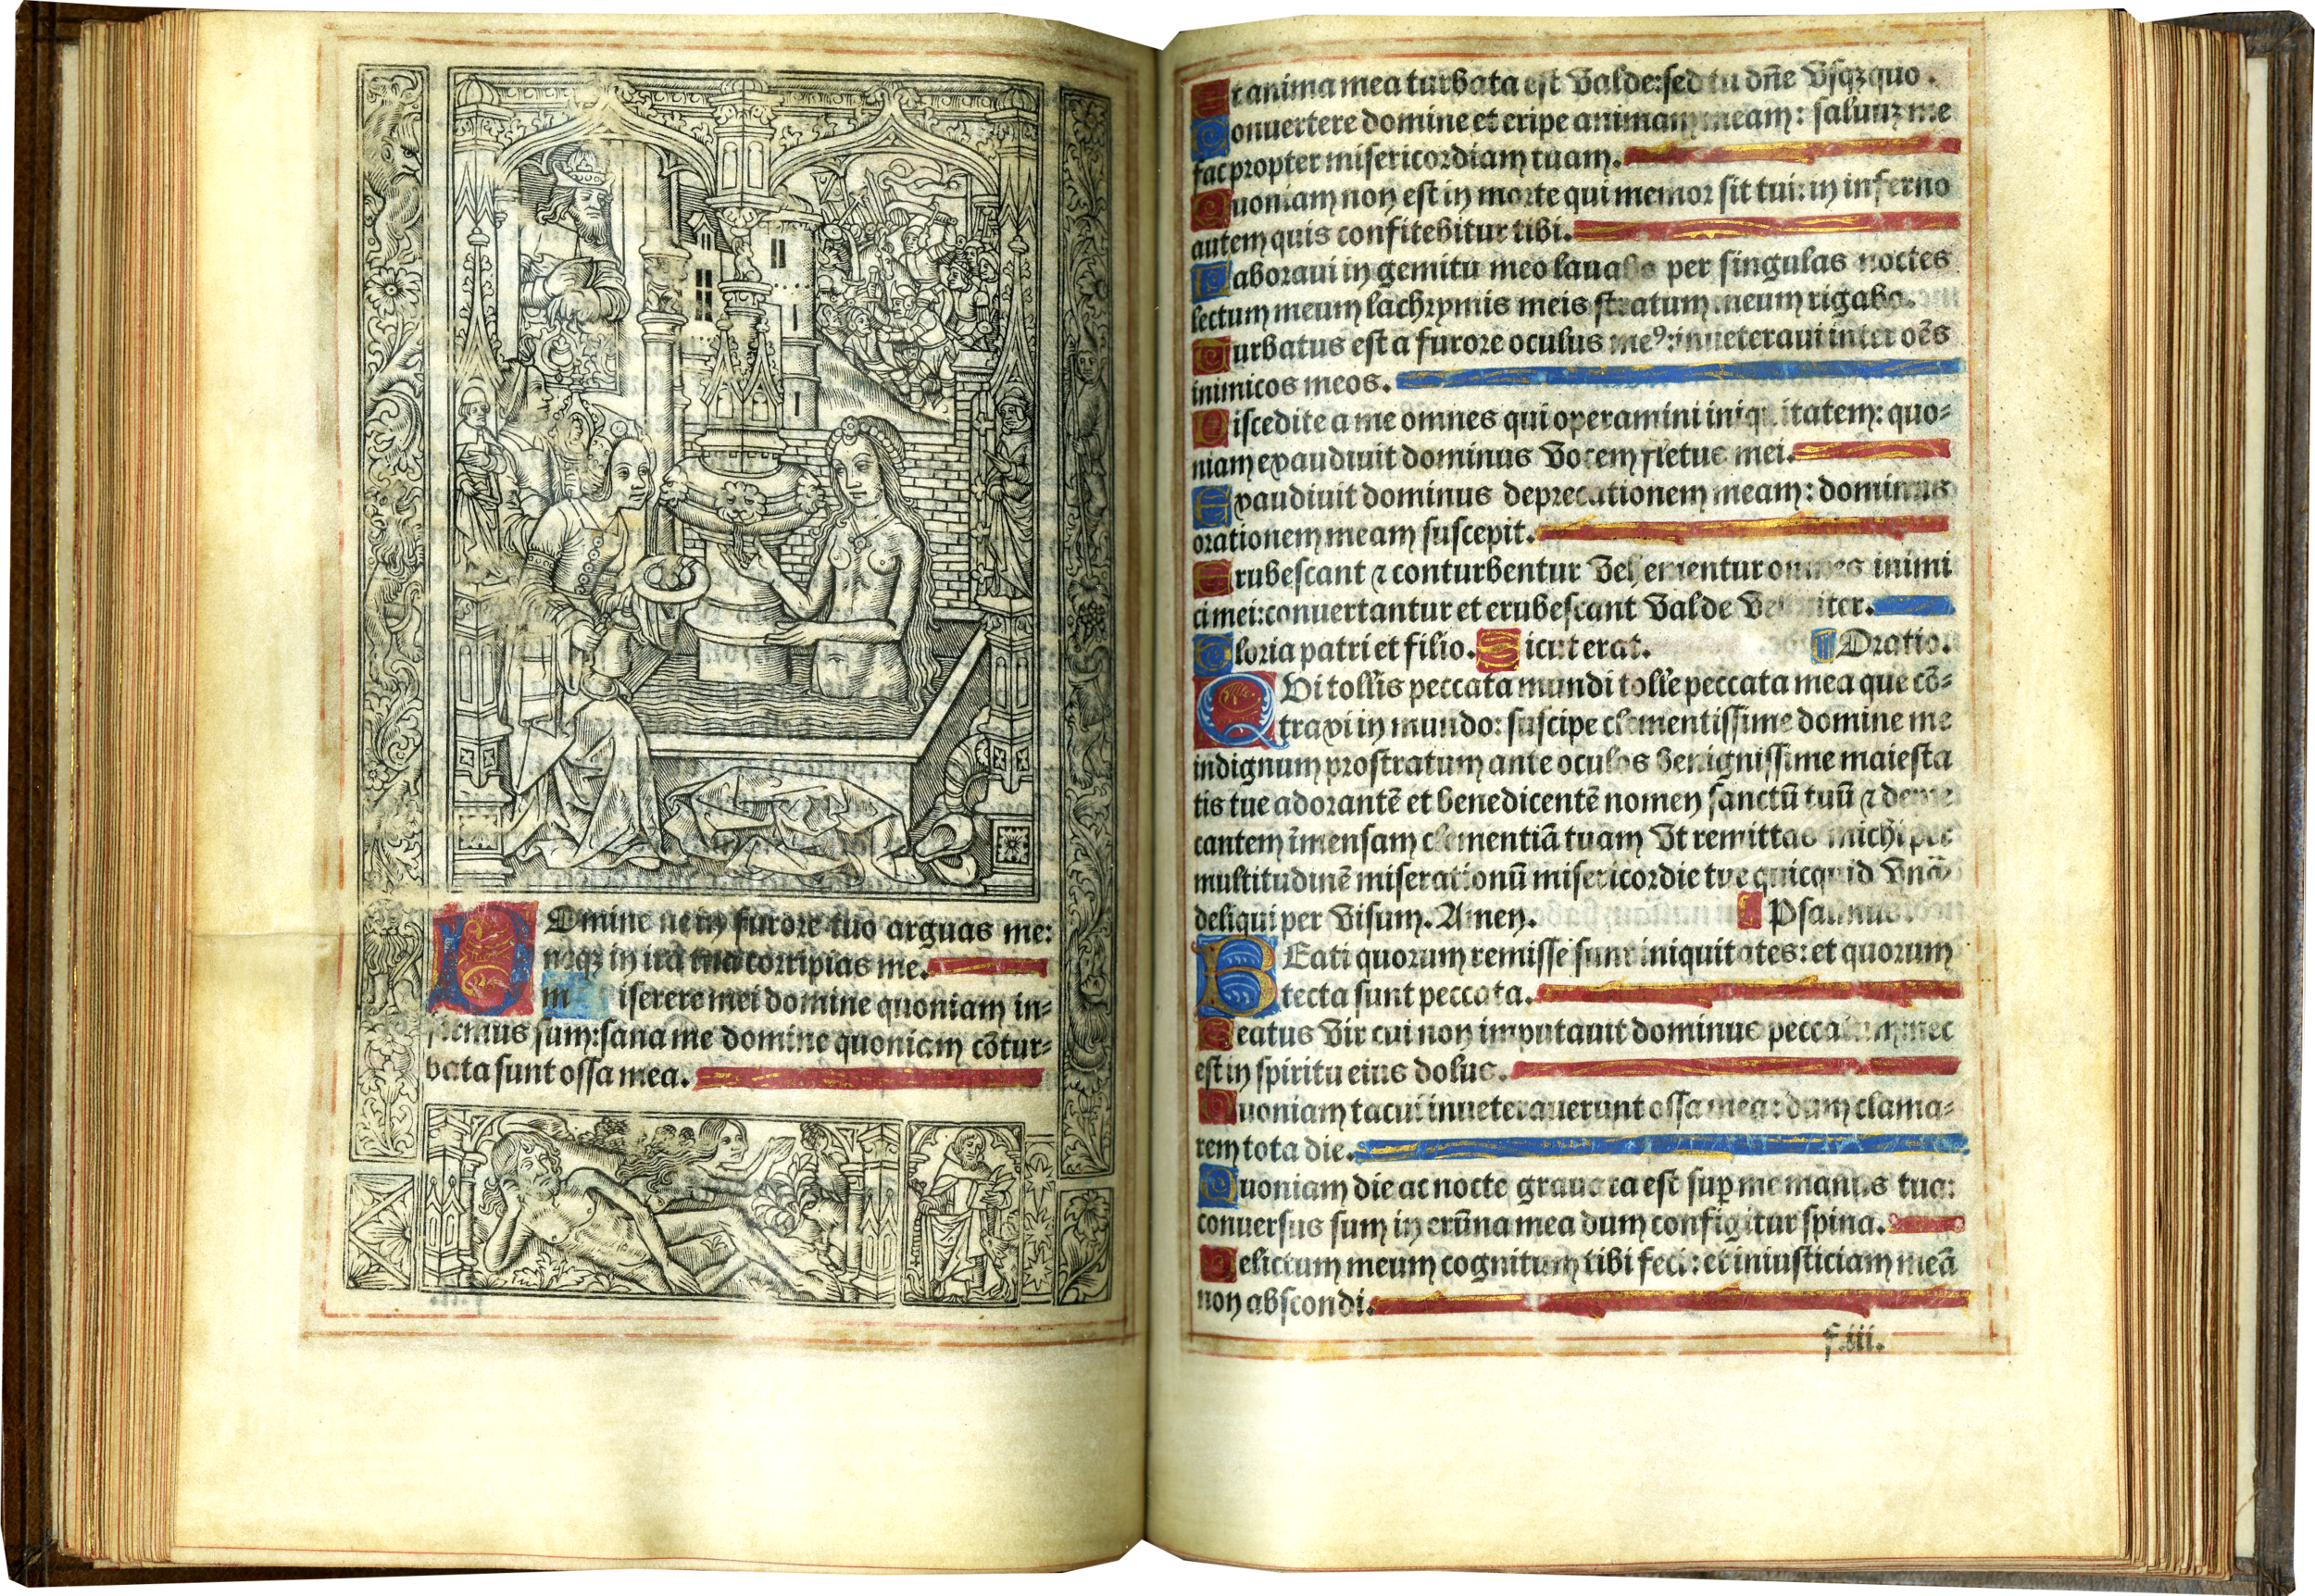 Domine ne in furore tuo arguas me:
neqꝫ in ira tua corripias me.
miserere mei domine quoniam in-
firmus sum: sana me domine quoniam cōtur-
bata sunt ossa mea.
Et anima mea turbata est valde: sed tu dn̄e vsqꝫquo.
Conuertere domine et eripe animam meam: saluuꝫ me
fac propter misericordiam tuam.
Quoniam non est in morte qui memor sit tui: in inferno
autem quis confitebitur tibi.
Laboraui in gemitu meo lauabo per singulas noctes
lectum meum lachrymis meis stratum meum rigabo.
Turbatus est a furore oculus meꝰ: inueteraui inter oēs
inimicos meos.
Discedite a me omnes qui operamini iniquitatem: quo-
niam exaudiuit dominus vocem fletus mei.
Exaudiuit dominus deprecationem meam: dominus
orationem meam suscepit.
Erubescant ⁊ conturbentur vehementur omnes inimi
ci mei: conuertantur et erubescant valde velociter.
Gloria patri et filio. Sicut erat. Oratio.
QVi tollis peccata mundi tolle peccata mea que cō-
traxi in mundo: suscipe clementissime domine me
indignum prostratum ante oculos benignissime maiesta
tis tue adorantē et benedicentē nomen sanctū tuū ⁊ depre
cantem īmensam clementiā tuam vt remittas michi per
multitudinē miserationū misericordie tue quicquid vnꝙ̄
deliqui per visum. Amen. Psalmus.
BEati quorum remisse sunt iniquitates: et quorum
tecta sunt peccata.
Beatus vir cui non imputauit dominus peccatum: nec
est in spiritu eius dolus.
Quoniam tacui inueterauerunt ossa mea: dum clama-
rem tota die.
Quoniam die ac nocte grauata est sup̄ me manus tua:
conuersus sum in erūna mea dum configitur spina.
Delictum meum cognitum tibi feci: et iniusticiam meā
non abscondi.
f.iii.